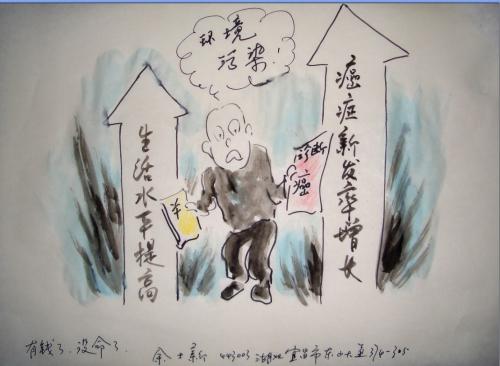 环境
污染!
生活水平提高
癌症新发率增长
诊断
癌
有钱了.没命了.
余士 443003 湖北宜昌市东山大道374-305